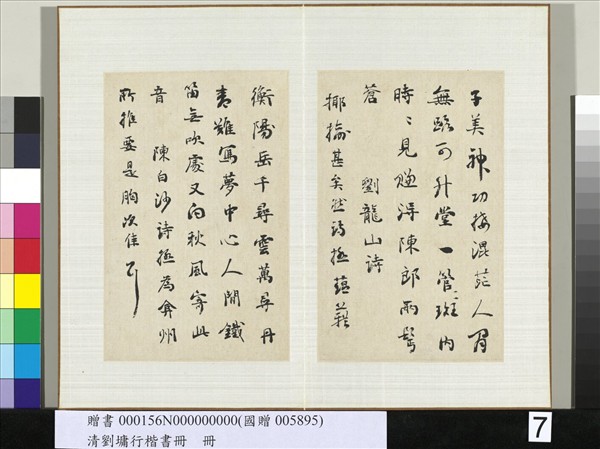 子美神功接混茫人間
無路可升堂一管斑內
時〻見賺得陳郎兩鬢
蒼 劉龍山詩
揶揄甚矣然詩極蘊藉
衡陽岳千尋雲萬尋丹
青難寫夢中心人間鐵
笛無吹處又向秋風寄此
音 陳白沙詩極為弇州
所推要是胸次佳耳
贈書 000156N000000000(國贈 005895)
清劉墉行楷書冊 冊
7